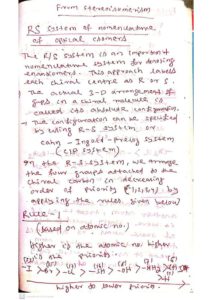 From stereoisomerism
RS system of nomenclature
of optical isomers
The R/S system is an important
nomenclature system for denoting
enantiomers. This approach labels
each chiral centre as R or S.
The actual 3-D arrangement of
grps. on a chiral molecule is
called its absolute configuration.
The configuration can be specified
by using R-S system or
Cahn - Ingold - Prelog system
(CIP system)
In the R-S-system, we arrange
the four groups attached to the
chiral carbon in decreasing
order of priority (1,2,3,4) by
applying the rules, given below!
Rule - 1
(based on atomic no.)
Higher is the atomic no. higher
is priority
-I > Br > -Cl > -SH > -OH > -NH2 > CH3
>H
higher to lower